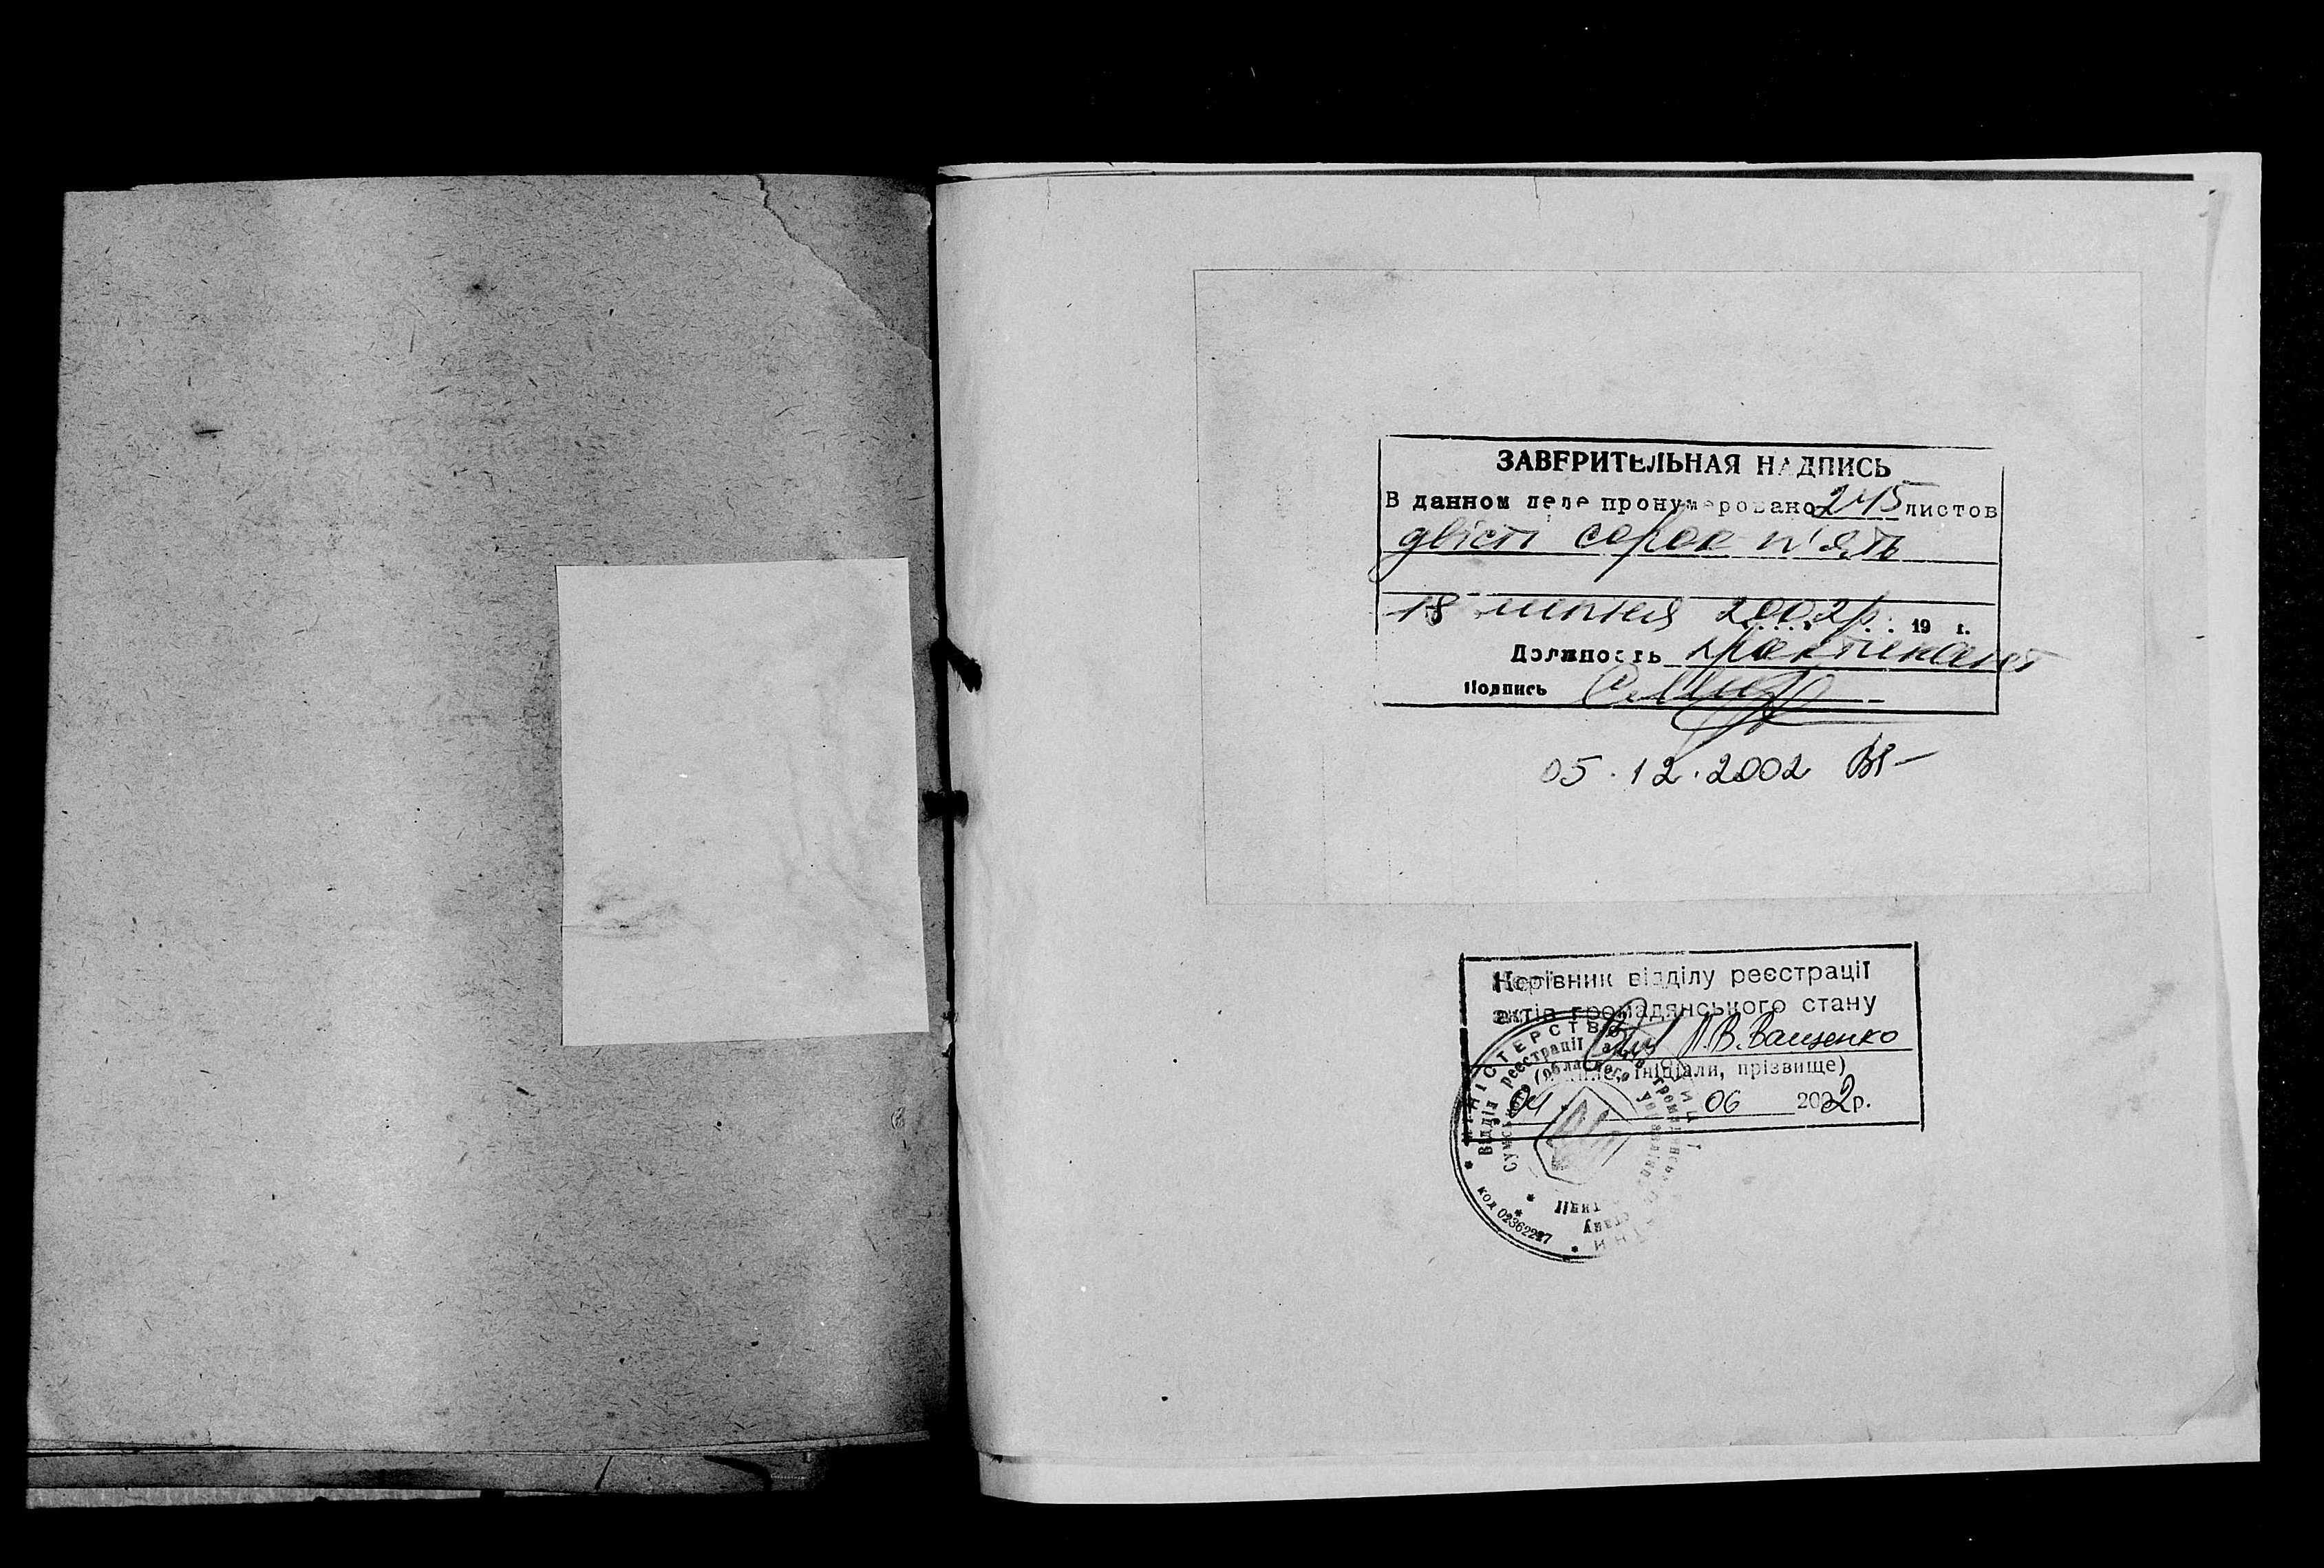 ЗАВЕРИТЕЛЬНАЯ НАДПИСЬ
В данном деле пронумеровано 245 листов
двісті сорок п'ять
18 липня 2002р. 19 г.
Должность практикант
Подпись
05.12.2002
Керівник відділу реєстрації
актів громадянського стану
В.Ващенко
ініціали, прізвище)
04 06 2002р.
МІНІСТЕРСТВО ЮСТИЦІЇ
Відділ реєстрації актів громадянського стану
Сумського обласного управління юстиції
код 02362227